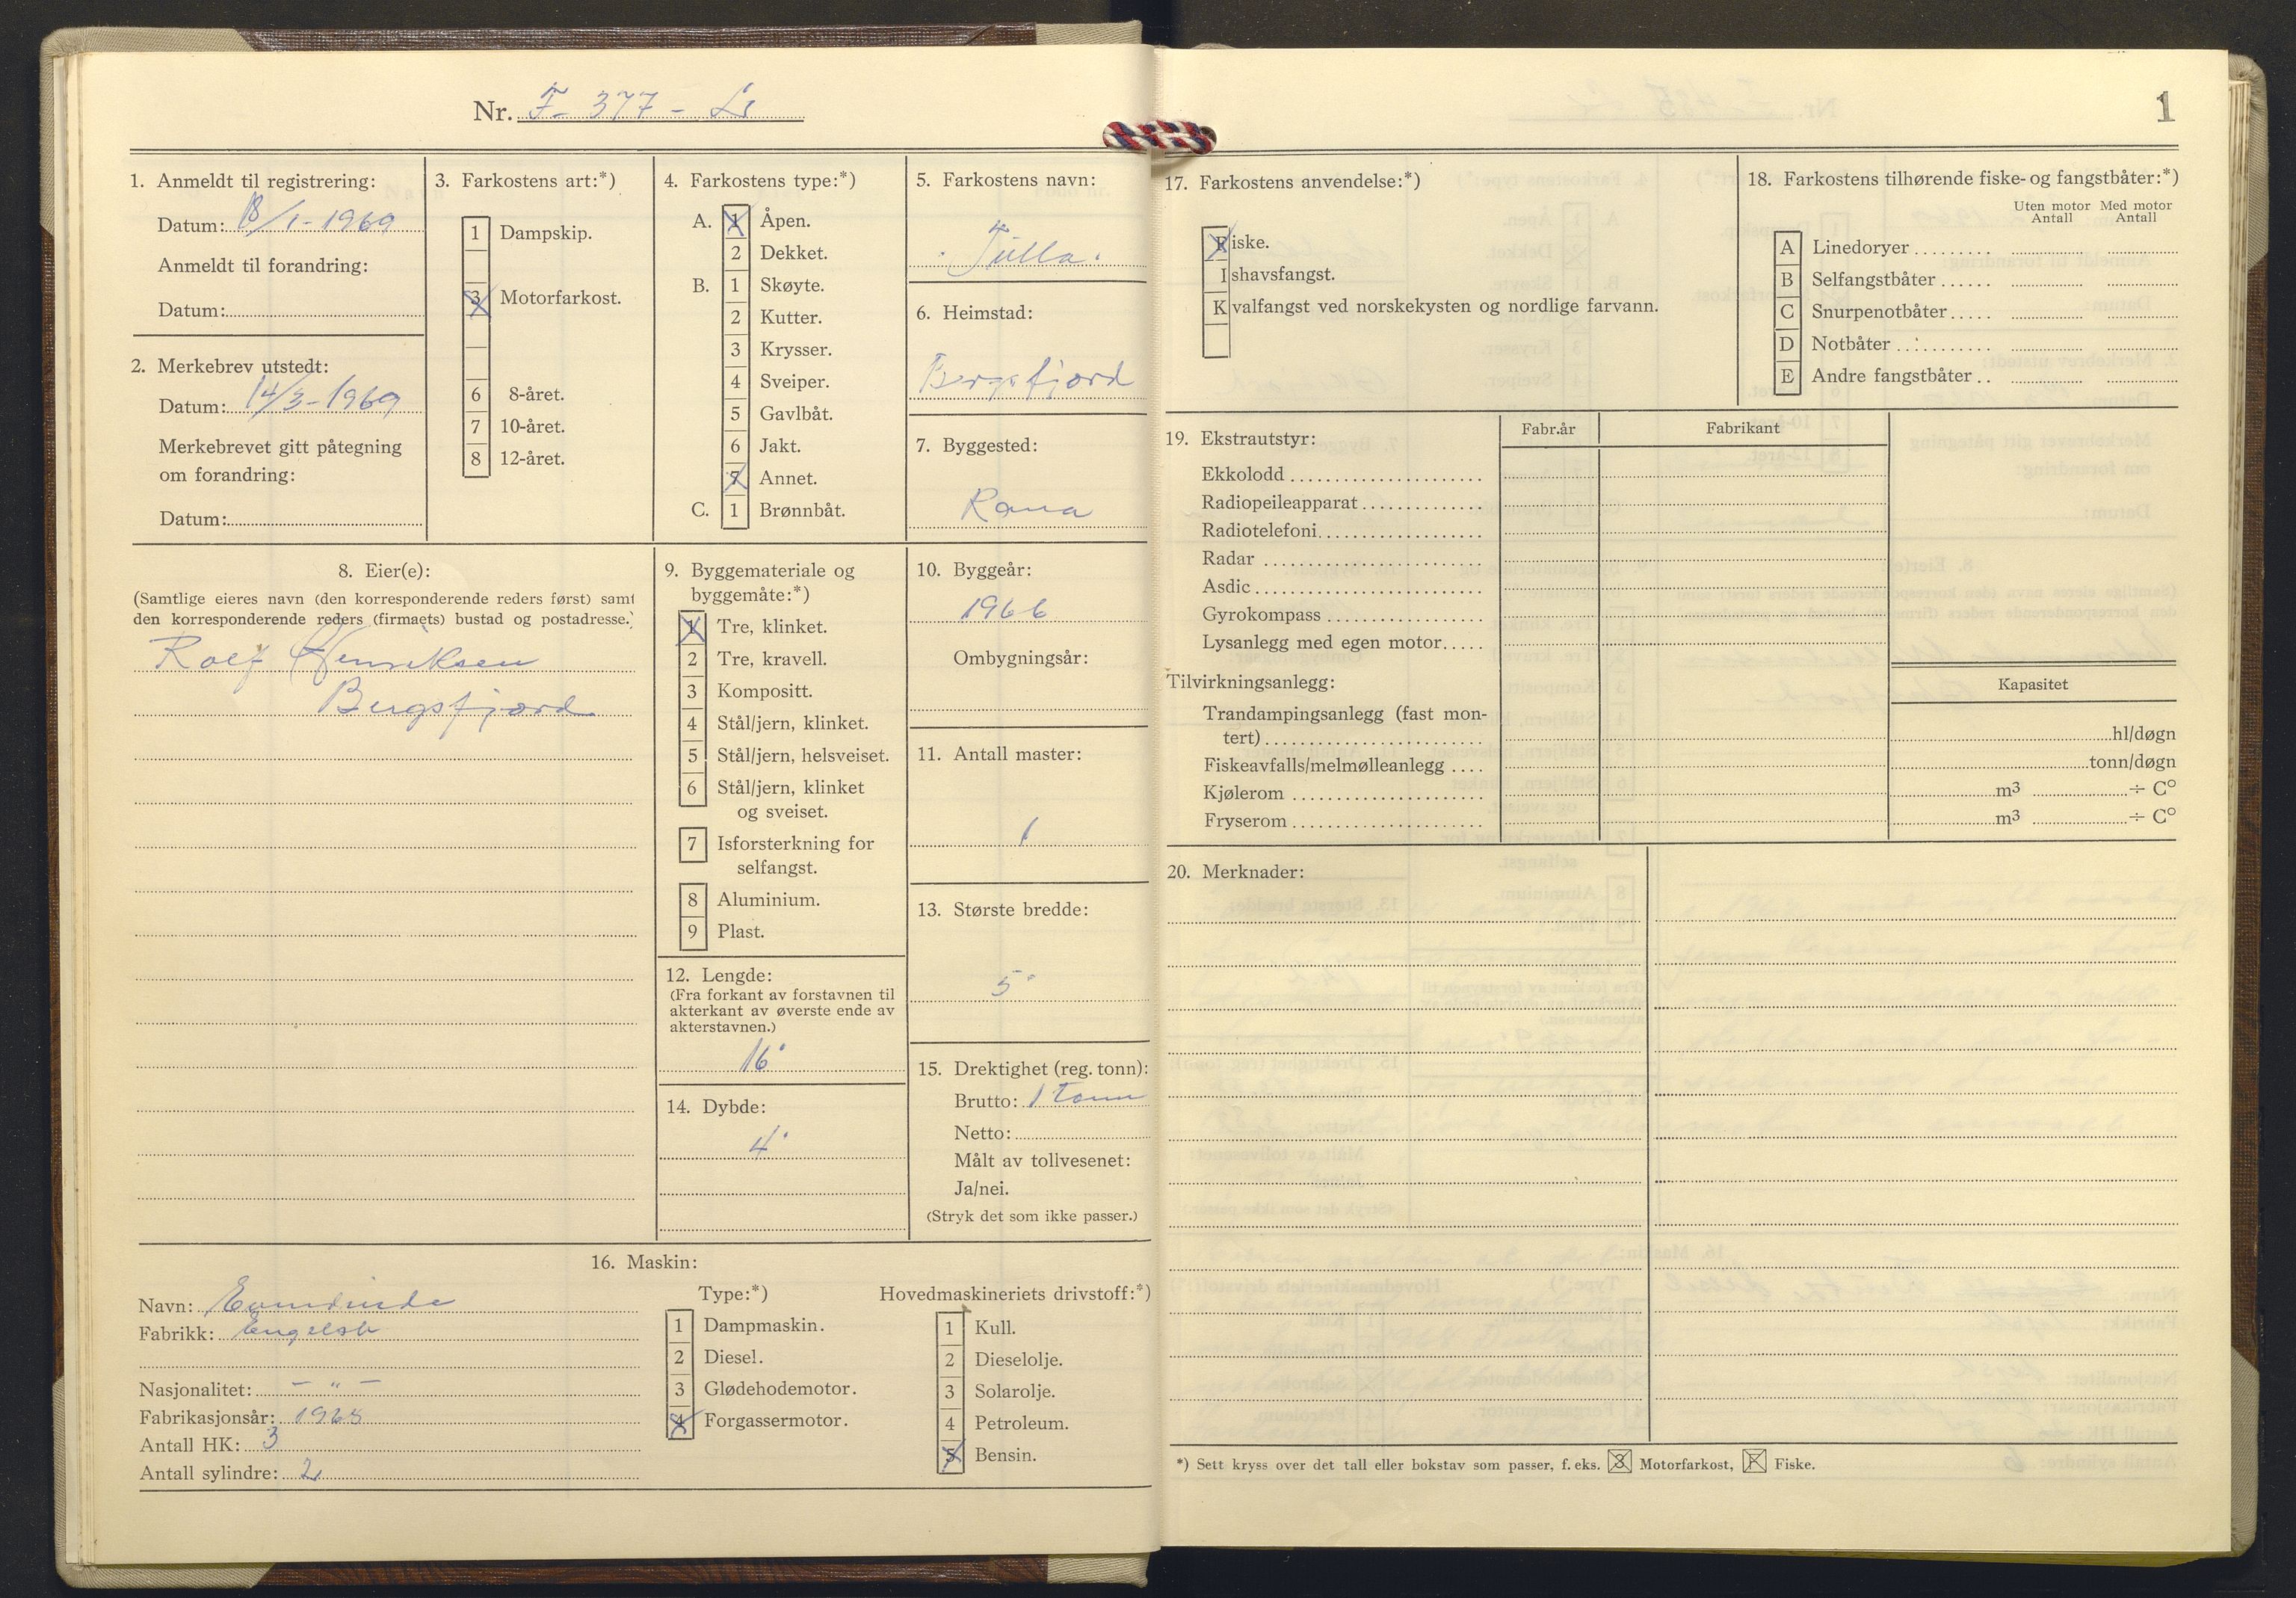 Nr. F- 377 - Ls
1
1. Anmeldt til registrering:
Datum: 18/1-1969
Anmeldt til forandring:
Datum:
2. Merkebrev utstedt:
Datum: 14/3-1969
Merkebrevet gitt påtegning
om forandring:
Datum:
3. Farkostens art:*)
1 Dampskip.
3 Motorfarkost.
6 8-året.
7 10-året.
8 12-året.
4. Farkostens type:*)
A. 1 Åpen.
2 Dekket.
B. 1 Skøyte.
2 Kutter.
3 Krysser.
4 Sveiper.
5 Gavlbåt.
6 Jakt.
7 Annet.
C. 1 Brønnbåt.
5. Farkostens navn:
Tulla.
6. Heimstad:
Bergsfjord
7. Byggested:
Rana
8. Eier(e):
(Samtlige eieres navn (den korresponderende reders først) samt
den korresponderende reders (firmaets) bustad og postadresse.)
Rolf Henriksen
Bergsfjord
9. Byggemateriale og
byggemåte:*)
1 Tre, klinket.
2 Tre, kravell.
3 Kompositt.
4 Stål/jern, klinket.
5 Stål/jern, helsveiset.
6 Stål/jern, klinket
og sveiset.
7 Isforsterkning for
selfangst.
8 Aluminium.
9 Plast.
10. Byggeår:
1966
Ombygningsår:
11. Antall master:
1
12. Lengde:
(Fra forkant av forstavnen til
akterkant av øverste ende av
akterstavnen.)
16'
13. Største bredde:
5'
14. Dybde:
4'
15. Drektighet (reg. tonn):
Brutto: 1 tonn
Netto:
Målt av tollvesenet:
Ja/nei.
(Stryk det som ikke passer.)
16. Maskin:
Navn:
Fabrikk: Engelsk
Nasjonalitet: - " -
Fabrikasjonsår: 1968
Antall HK: 3
Antall sylindre: 2
Type:*)
1 Dampmaskin.
2 Diesel.
3 Glødehodemotor.
4 Forgassermotor.
Hovedmaskineriets drivstoff:*)
1 Kull.
2 Dieselolje.
3 Solarolje.
4 Petroleum.
5 Bensin.
17. Farkostens anvendelse:*)
Fiske.
Ishavsfangst.
Kvalfangst ved norskekysten og nordlige farvann.
18. Farkostens tilhørende fiske- og fangstbåter:*)
Uten motor Med motor
Antall Antall
A Linedoryer
B Selfangstbåter
C Snurpenotbåter
D Notbåter
E Andre fangstbåter
19. Ekstrautstyr:
Fabr.år Fabrikant
Ekkolodd
Radiopeileapparat
Radiotelefoni
Radar
Asdic
Gyrokompass
Lysanlegg med egen motor
Tilvirkningsanlegg:
Kapasitet
Trandampingsanlegg (fast mon-
tert) hl/døgn
Fiskeavfalls/melmølleanlegg tonn/døgn
Kjølerom m³ ÷ C°
Fryserom m³ ÷ C°
20. Merknader:
*) Sett kryss over det tall eller bokstav som passer, f. eks. 3 Motorfarkost, F Fiske.